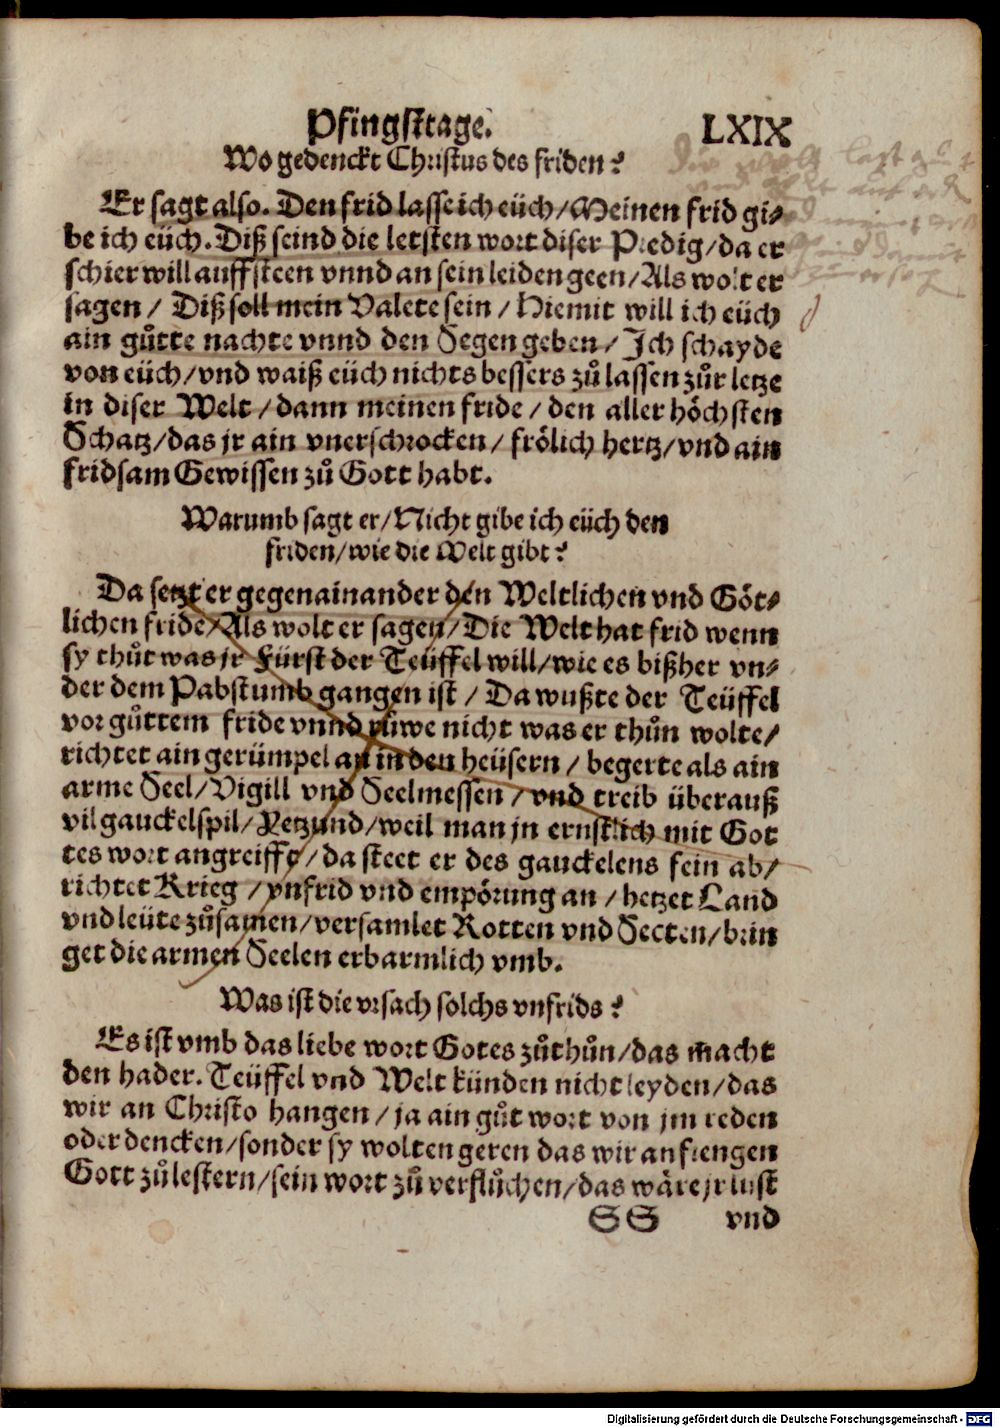 Pfingsttage. LXIX
Wo gedenckt Christus des friden?
Er sagt also. Den frid lasse ich eüch/Meinen frid gi⸗
be ich eüch. Diß seind die letsten wort diser Predig/da er
schier will auffsteen vnnd an sein leiden geen/Als wolt er
sagen/ Diß soll mein Valete sein/Hiemit will ich eüch
ain gůtte nachte vnnd den Segen geben/ Ich schayde
von eüch/vnd waiß eüch nichts bessers zů lassen zůr letze
in diser Welt/dann meinen fride/den aller höchsten
Schatz/das jr ain vnerschrocken/frölich hertz/vnd ain
fridsam Gewissen zů Gott habt.
Warumb sagt er/Nicht gibe ich eüch den
friden/wie die Welt gibt?
Da setzt er gegenainander den Weltlichen vnd Göt⸗
lichen fride/Als wolt er sagen/Die Welt hat frid wenn
sy thůt was jr Fürst der Teüffel will/wie es bißher vn⸗
der dem Pabstumb gangen ist/Da wußte der Teüffel
vor gůttem fride vnnd růwe nicht was er thůn wolte/
richtet ain gerümpel an in den heüsern/begerte als ain
arme Seel/Vigill vnd Seelmessen/vnd treib überauß
vil gauckelspil/Yetzund/weil man jn ernstlich mit Got
tes wort angreiffe/da steet er des gauckelens fein ab/
richtet Krieg/vnfrid vnd empörung an/hetzet Land
vnd leüte zůsamen/versamlet Rotten vnd Secten/brin
get die armen Seelen erbarmlich vmb.
Was ist die vrsach solchs vnfrids?
Es ist vmb das liebe wort Gotes zůthůn/das macht
den hader. Teüffel vnd Welt künden nicht leyden/das
wir an Christo hangen/ja ain gůt wort von jm reden
oder dencken/sonder sy wolten geren das wir anfiengen
Gott zů lestern/sein wort zů verflůchen/das wäre jr lust
SS vnd
Digitalisierung gefördert durch die Deutsche Forschungsgemeinschaft - DFG